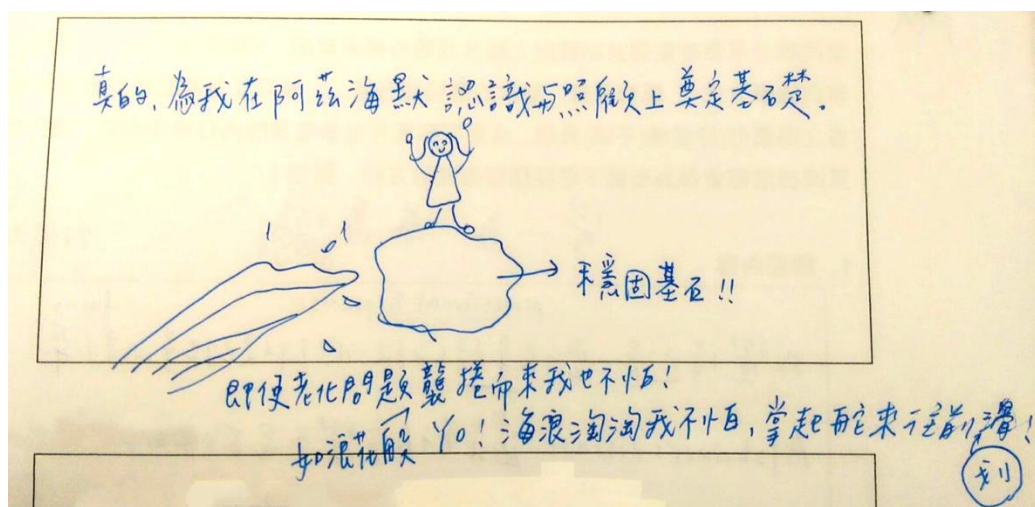 真的，為我在阿茲海默認識與照顧上奠定基礎.
穩固基石!!
即便老化問題襲捲而來我也不怕!
如浪花般
Yo! 海浪淘淘我不怕，掌起舵來往前滑!
划